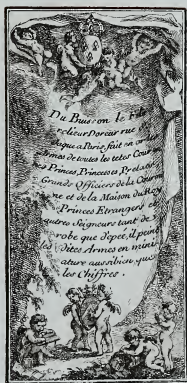 Du Buisson le Fils
relieur Doreur rue St
Jaque a Paris, fait en or les
Armes de toutes les tetes Couron
nées Princes, Princesses, Prelats et
Grands Officiers de la Couron
ne et de la Maison du Roy
Princes Etrangers et
autres Seigneurs tant de
robe que d'épée, il peint
les dites Armes en mini
ature aussi bien que
les Chiffres.